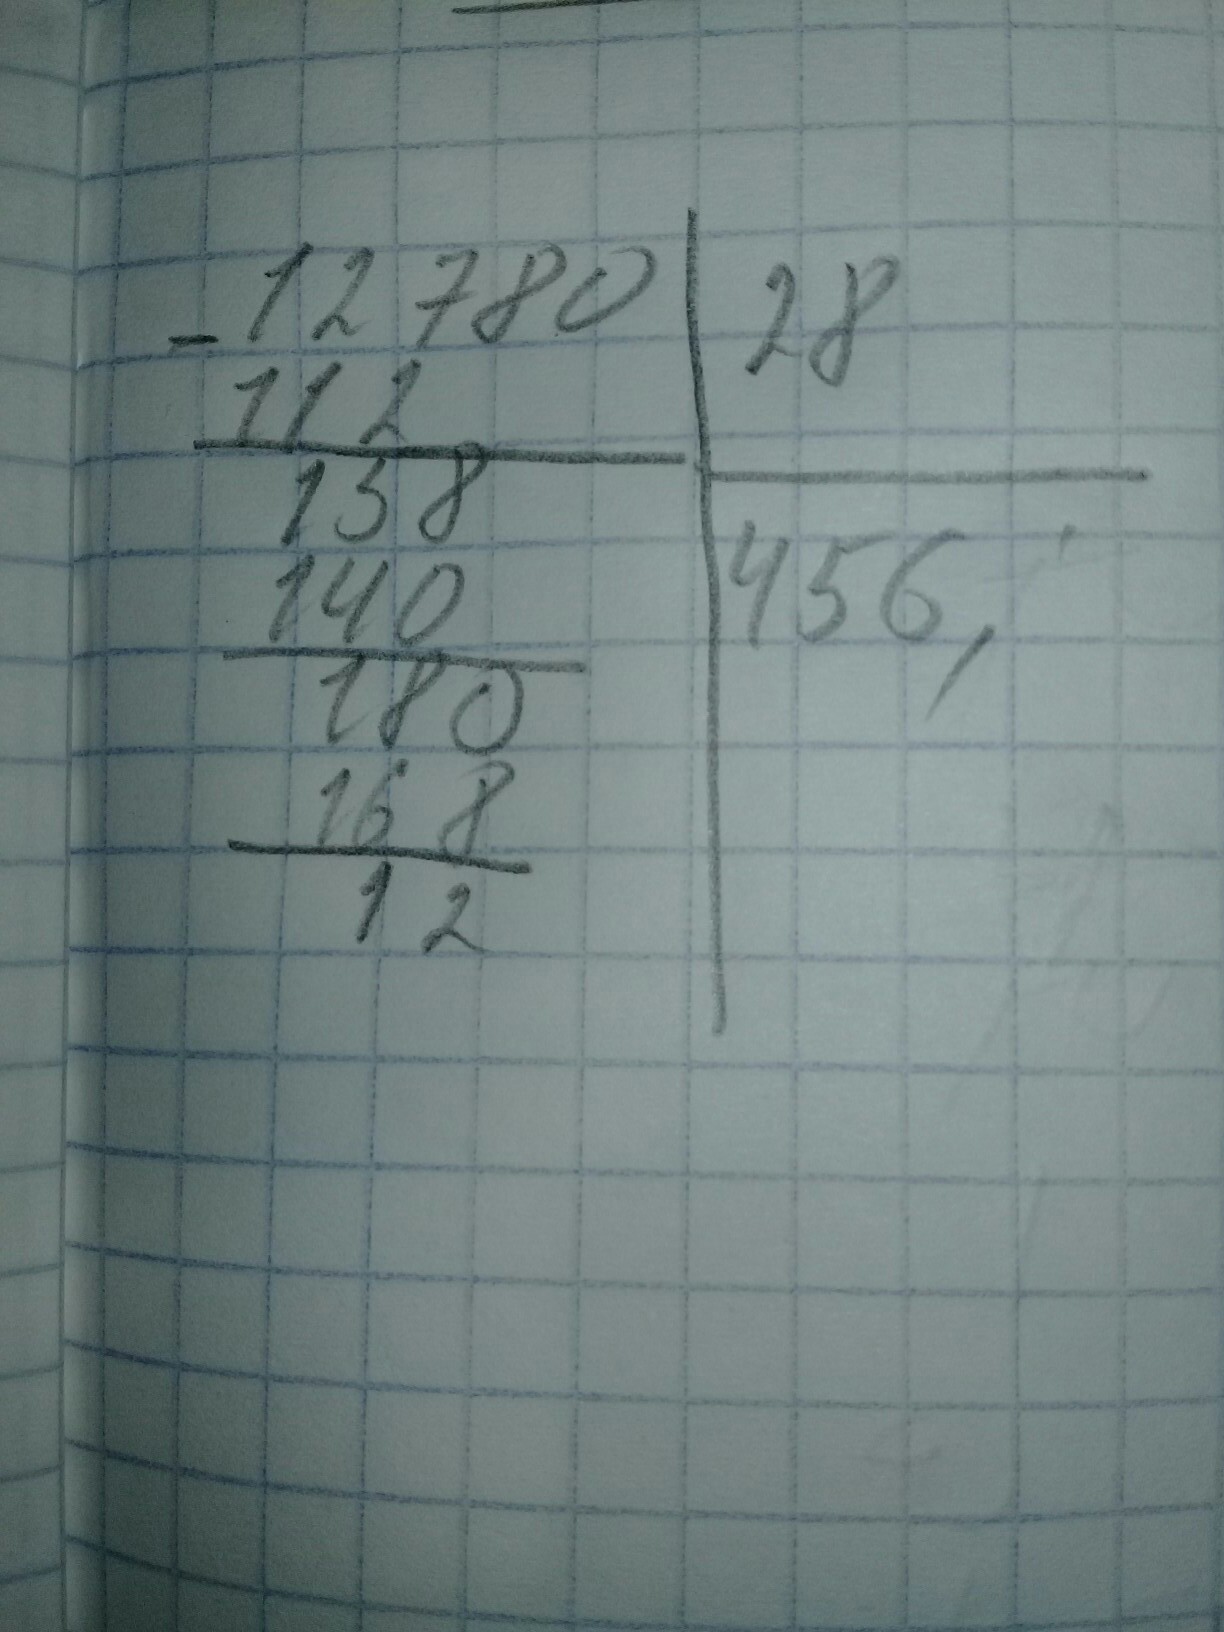 -12780 28
112
158 456,
140
180
168
12